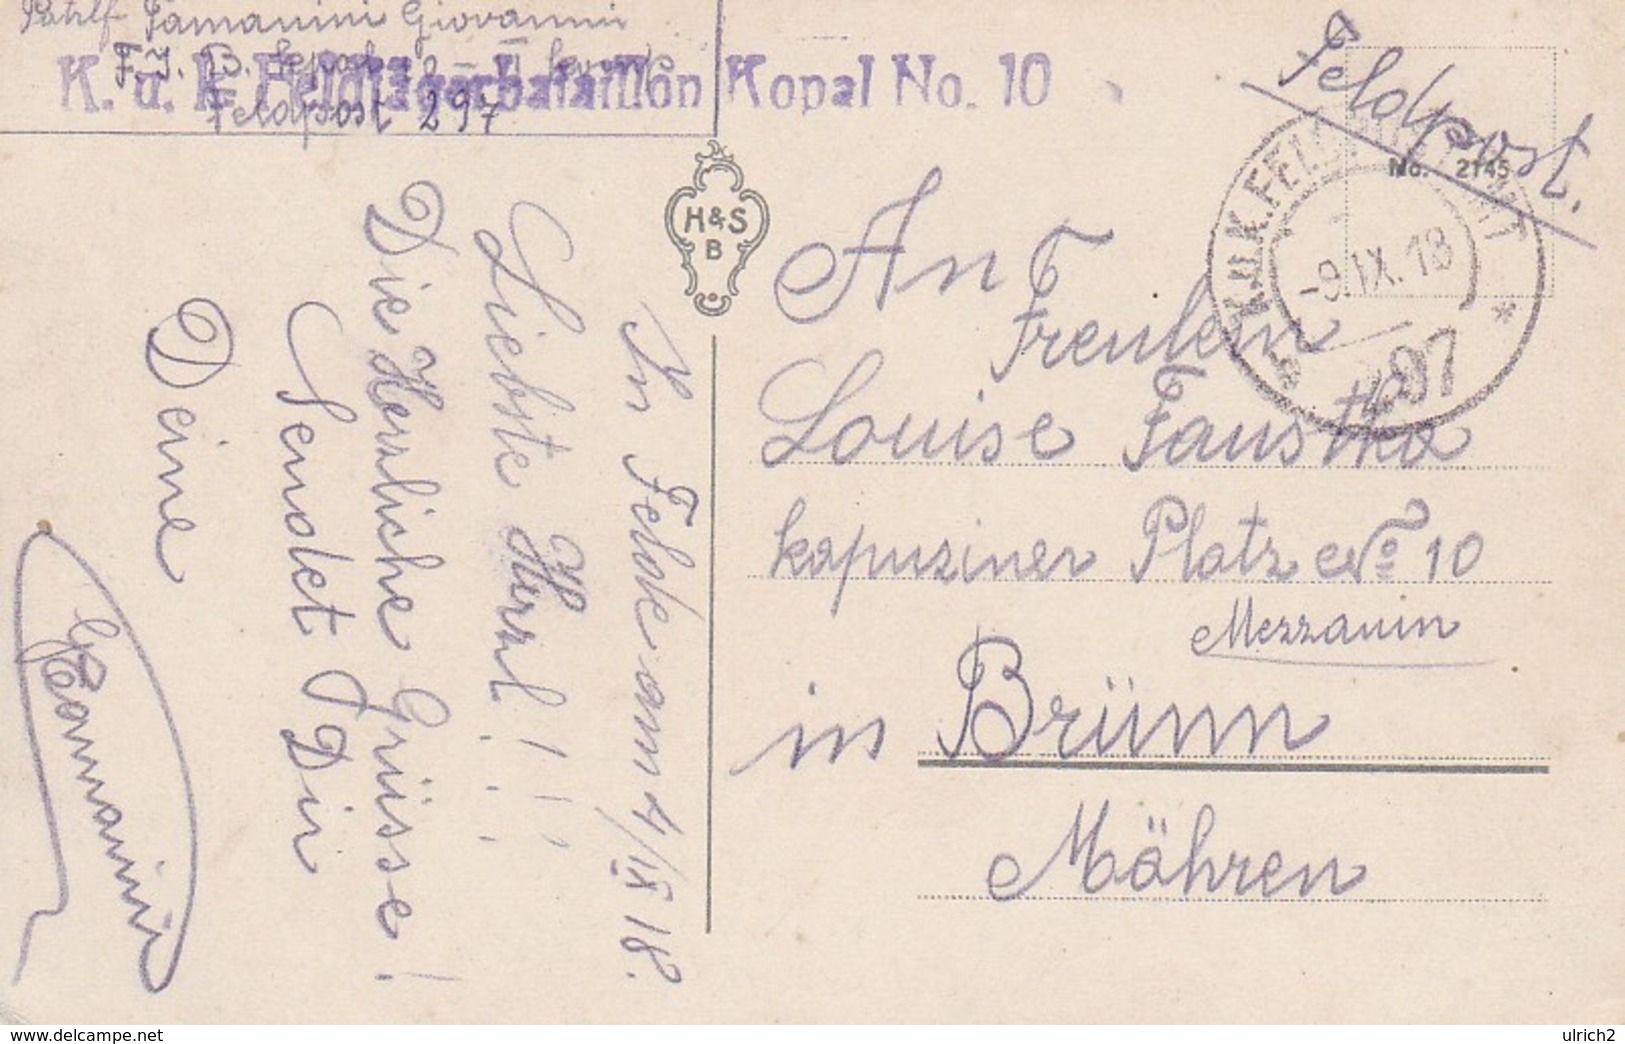 Patrlf Tamanini Giovanni
F. J. B.
Feldpost 297
K. u. k. Feldjägerbataillon Kopal No. 10
Feldpost.
No. 2145
K.u.K. FELDPOSTAMT
-9.IX.18
297
H&S
B
An
Freulein
Louise Faustka
Kapuziner Platz No 10
Mezzanin
in Brünn
Mähren
Im Felde am 4/IX 18.
Liebste Herzl!!!
Die Herzliche Grüsse!
Sendet Dir
Deine
GTamanini
delcampe.net
ulrich2